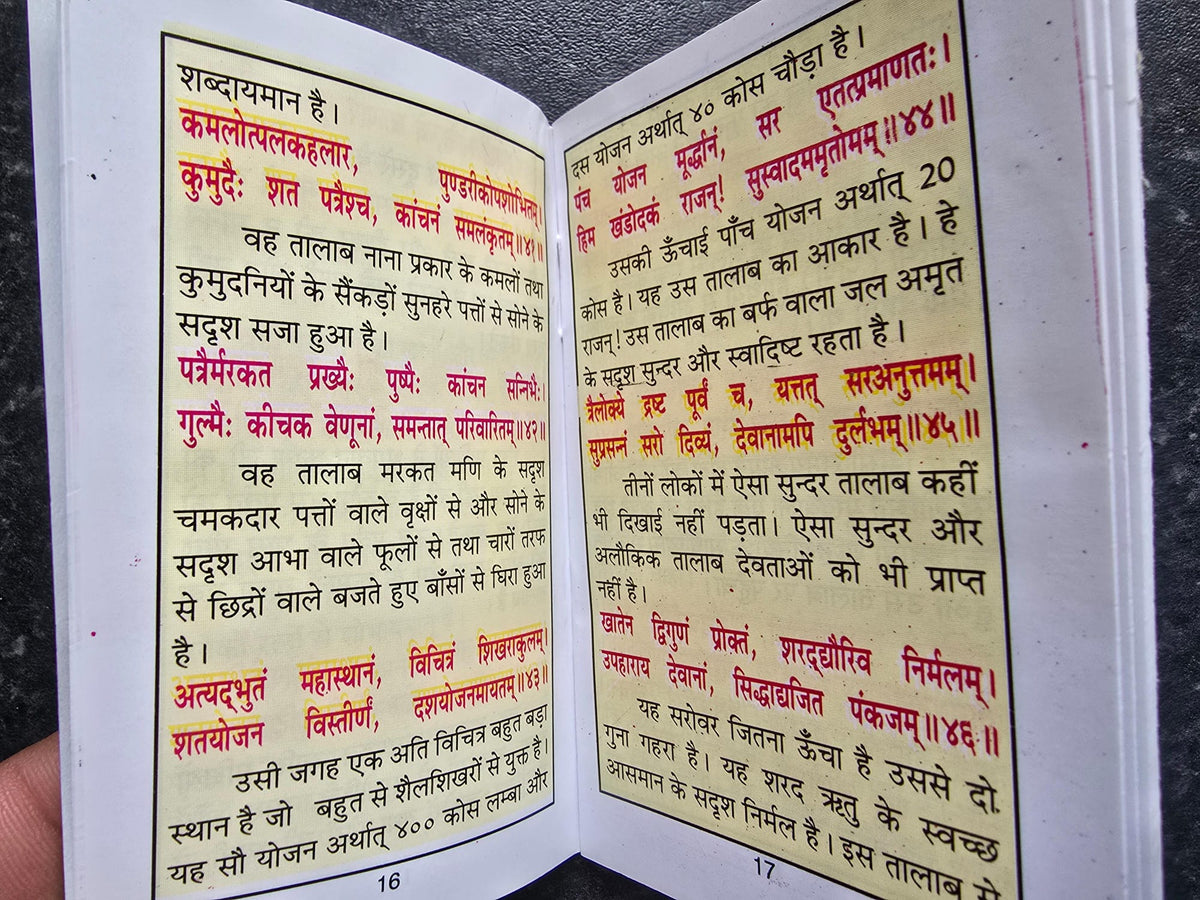 शब्दायमान है।
कमलोत्पलकहलार, पुण्डरीकोपशोभितम्।
कुमुदैः शत पत्रैश्च, कांचनं समलंकृतम्॥४१॥
वह तालाब नाना प्रकार के कमलों तथा
कुमुदनियों के सैंकड़ों सुनहरे पत्तों से सोने के
सदृश सजा हुआ है।
पत्रैर्मरकत प्रख्यैः पुष्पैः कांचन सन्निभैः।
गुल्मैः कीचक वेणूनां, समन्तात् परिवारितम्॥४२॥
वह तालाब मरकत मणि के सदृश
चमकदार पत्तों वाले वृक्षों से और सोने के
सदृश आभा वाले फूलों से तथा चारों तरफ
से छिद्रों वाले बजते हुए बाँसों से घिरा हुआ
है।
अत्यद्भुतं महास्थानं, विचित्रं शिखराकुलम्।
शतयोजन विस्तीर्णं, दशयोजनमायतम्॥४३॥
उसी जगह एक अति विचित्र बहुत बड़ा
स्थान है जो बहुत से शैलशिखरों से युक्त है।
यह सौ योजन अर्थात् ४०० कोस लम्बा और
16
दस योजन अर्थात् ४० कोस चौड़ा है।
पंच योजन मूर्द्धानं, सर एतत्प्रमाणतः।
हिम खंडोदकं राजन्! सुस्वादममृतोमम्॥४४॥
उसकी ऊँचाई पाँच योजन अर्थात् 20
कोस है। यह उस तालाब का आकार है। हे
राजन्! उस तालाब का बर्फ वाला जल अमृत
के सदृश सुन्दर और स्वादिष्ट रहता है।
त्रैलोक्ये द्रष्ट पूर्वं च, यत्तत् सरअनुत्तमम्।
सुप्रसन्नं सरो दिव्यं, देवानामपि दुर्लभम्॥४५॥
तीनों लोकों में ऐसा सुन्दर तालाब कहीं
भी दिखाई नहीं पड़ता। ऐसा सुन्दर और
अलौकिक तालाब देवताओं को भी प्राप्त
नहीं है।
खातेन द्विगुणं प्रोक्तं, शरद्द्यौरिव निर्मलम्।
उपहाराय देवानां, सिद्धाद्यजित पंकजम्॥४६॥
यह सरोवर जितना ऊँचा है उससे दो
गुना गहरा है। यह शरद ऋतु के स्वच्छ
आसमान के सदृश निर्मल है। इस तालाब से
17